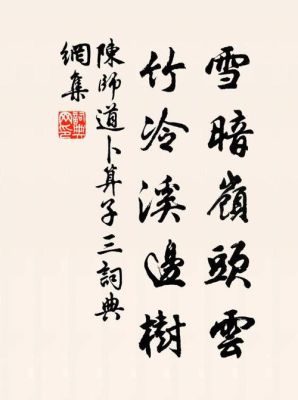 雪暗嶺頭雲
竹冷溪邊樹
陳師道卜算子三詞典
網集